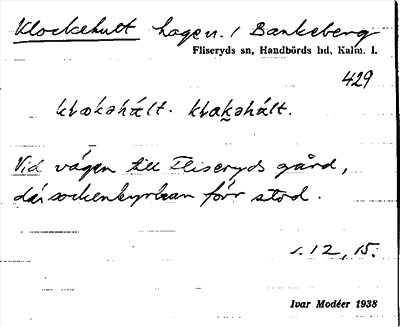 Klockehult hagen. / Bankeberg
Fliseryds sn, Handbörds hd, Kalm. l.
429
Vid vägen till Fliseryds gård,
där sockenkyrkan förr stod.
s. 12, 15.
Ivar Modéer 1938